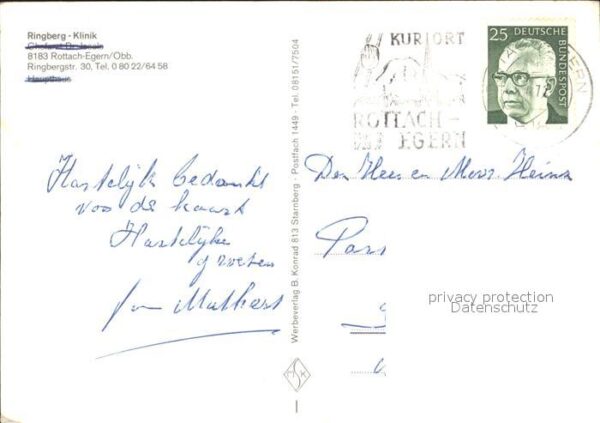 Ringberg - Klinik
8183 Rottach-Egern/Obb.
Ringbergstr. 30, Tel. 0 80 22/64 58
Haupthaus
KURORT
ROTTACH-
EGERN
25 DEUTSCHE
BUNDESPOST
72
Hartelijk bedankt
voo de kaart
Hartelijke
groeten
Den Heer en Mevr. Heinz
Werbeverlag B. Konrad 813 Starnberg · Postfach 1449 · Tel. 08151/7504
privacy protection
Datenschutz